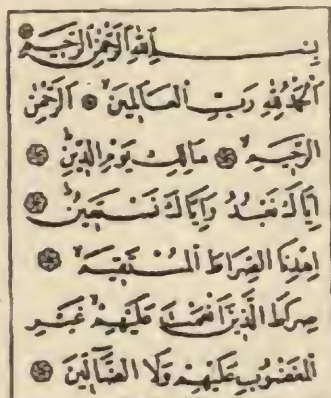 بِسْمِ اللهِ الرَّحْمٰنِ الرَّحِيْمِ
اَلْحَمْدُ لِلّٰهِ رَبِّ الْعَالَمِيْنَ ۙ اَلرَّحْمٰنِ
الرَّحِيْمِ ۙ مَالِكِ يَوْمِ الدِّيْنِ ؕ
اِيَّاكَ نَعْبُدُ وَاِيَّاكَ نَسْتَعِيْنُ ؕ
اِهْدِنَا الصِّرَاطَ الْمُسْتَقِيْمَ ۙ
صِرَاطَ الَّذِيْنَ اَنْعَمْتَ عَلَيْهِمْ ۙ غَيْرِ
الْمَغْضُوْبِ عَلَيْهِمْ وَلَا الضَّآلِّيْنَ